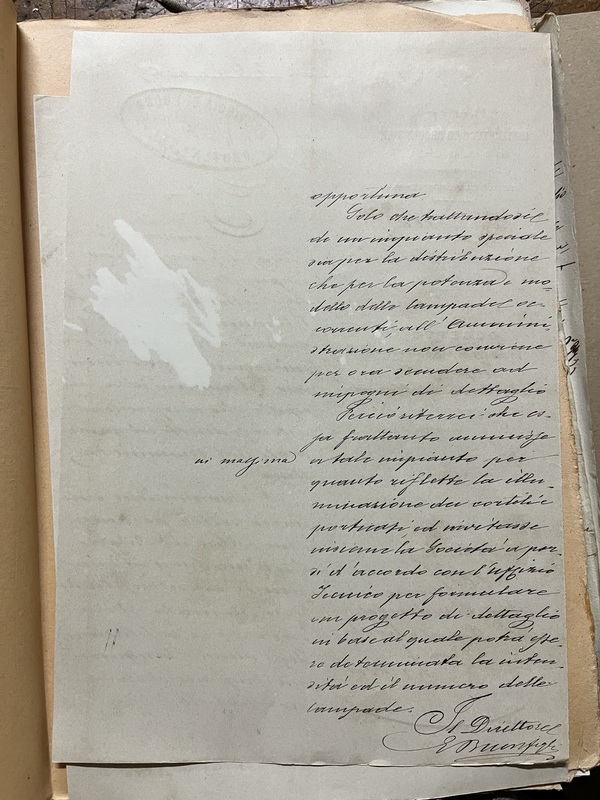 opportuna
Solo che trattandosi
di un impianto speciale
sia per la distribuzione
che per la potenza e mo-
dello delle lampade oc-
correnti all'Ammini-
strazione non conviene
per ora scendere ad
impegni di dettaglio
Perciò riterrei che es-
sa frattanto annuisse
in massima
a tale impianto per
quanto riflette la illu-
minazione dei cortili e
porticati, ed invitasse
insieme la Società a por-
si d'accordo con l'Uffizio
Tecnico per formulare
un progetto di dettaglio
in base al quale potrà esse-
re determinata la inten-
sità ed il numero delle
lampade.
Il Direttore